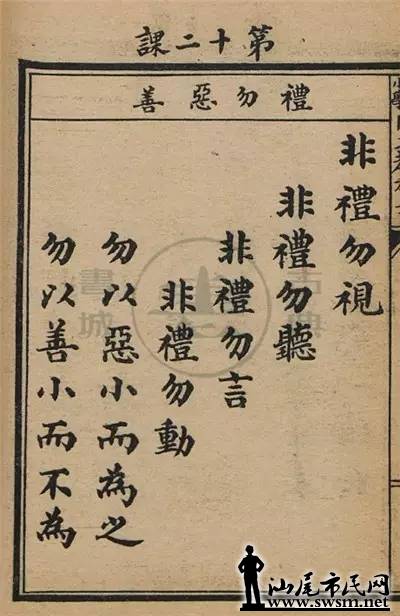 第十二課
禮勿惡善
非禮勿視
非禮勿聽
非禮勿言
非禮勿動
勿以惡小而為之
勿以善小而不為
古典書城
汕尾市民网
www.swsm.net